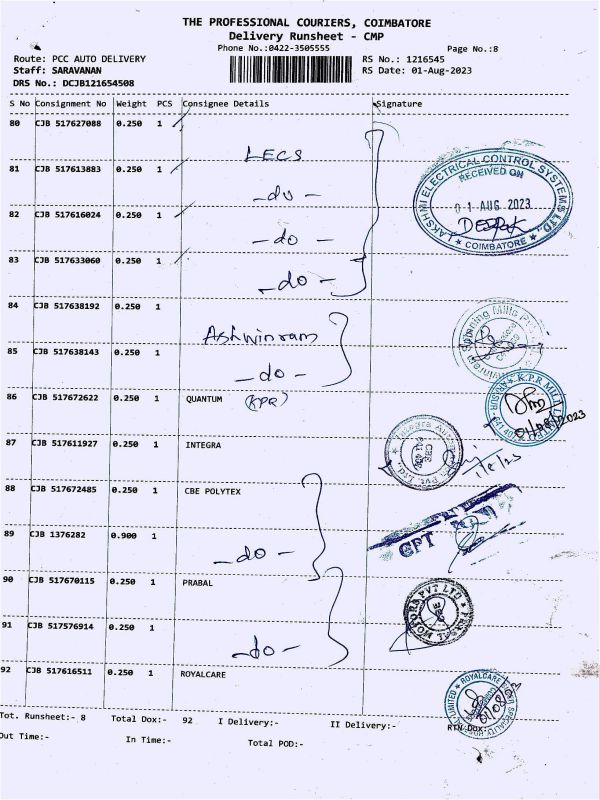 THE PROFESSIONAL COURIERS, COIMBATORE
Delivery Runsheet - CMP
Phone No.:0422-3505555 Page No.:8
Route: PCC AUTO DELIVERY RS No.: 1216545
Staff: SARAVANAN RS Date: 01-Aug-2023
DRS No.: DCJB121654508
S No Consignment No Weight PCS Consignee Details Signature
80 CJB 517627088 0.250 1
LECS
81 CJB 517613883 0.250 1
-do-
LAKSHMI ELECTRICAL CONTROL SYSTEMS LTD.,
RECEIVED ON
01 AUG 2023
DEEPAK
COIMBATORE
82 CJB 517616024 0.250 1
-do-
83 CJB 517633060 0.250 1
-do-
84 CJB 517638192 0.250 1
Ashwinram
Spinning Mills
85 CJB 517638143 0.250 1
-do-
86 CJB 517672622 0.250 1 QUANTUM (KPR)
K.P.R MILL
01/08/2023
87 CJB 517611927 0.250 1 INTEGRA
Integra
CBE
1/8/23
88 CJB 517672485 0.250 1 CBE POLYTEX
89 CJB 1376282 0.900 1
-do-
CPT
90 CJB 517670115 0.250 1 PRABAL
MOTORS PVT LTD
91 CJB 517576914 0.250 1
-do-
92 CJB 517616511 0.250 1 ROYALCARE
ROYALCARE
Tot. Runsheet:- 8 Total Dox:- 92 I Delivery:- II Delivery:- RTN DOX:-
Out Time:- In Time:- Total POD:-